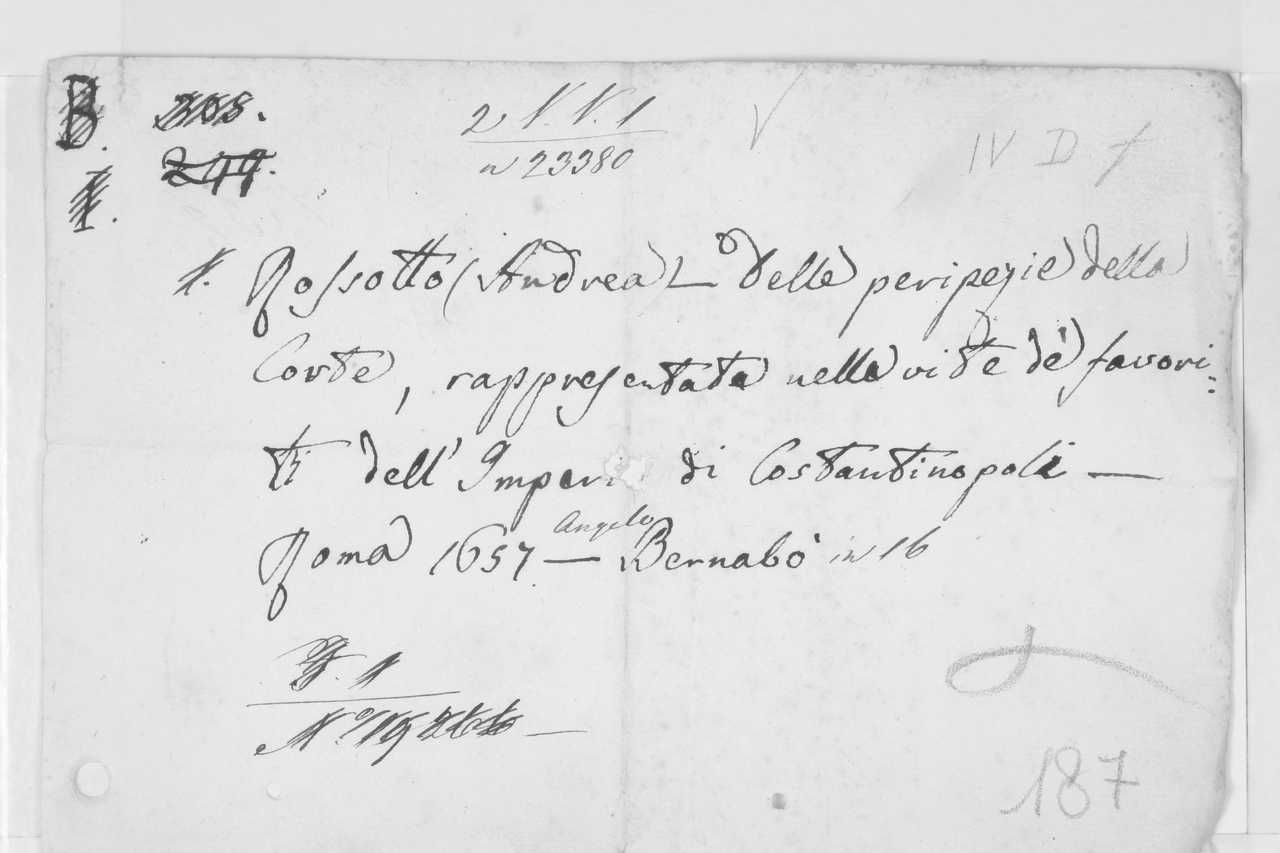 B. 308.
2 V.V. 1
n 23380
IV D f
I.
1. Rossotto (Andrea) Delle peripezie della
Corte, rappresentata nelle vite de' favori:
ti dell' Imperi di Costantinopoli —
Roma 1657 — Angelo Bernabò in 16
1
Nº. 19
187